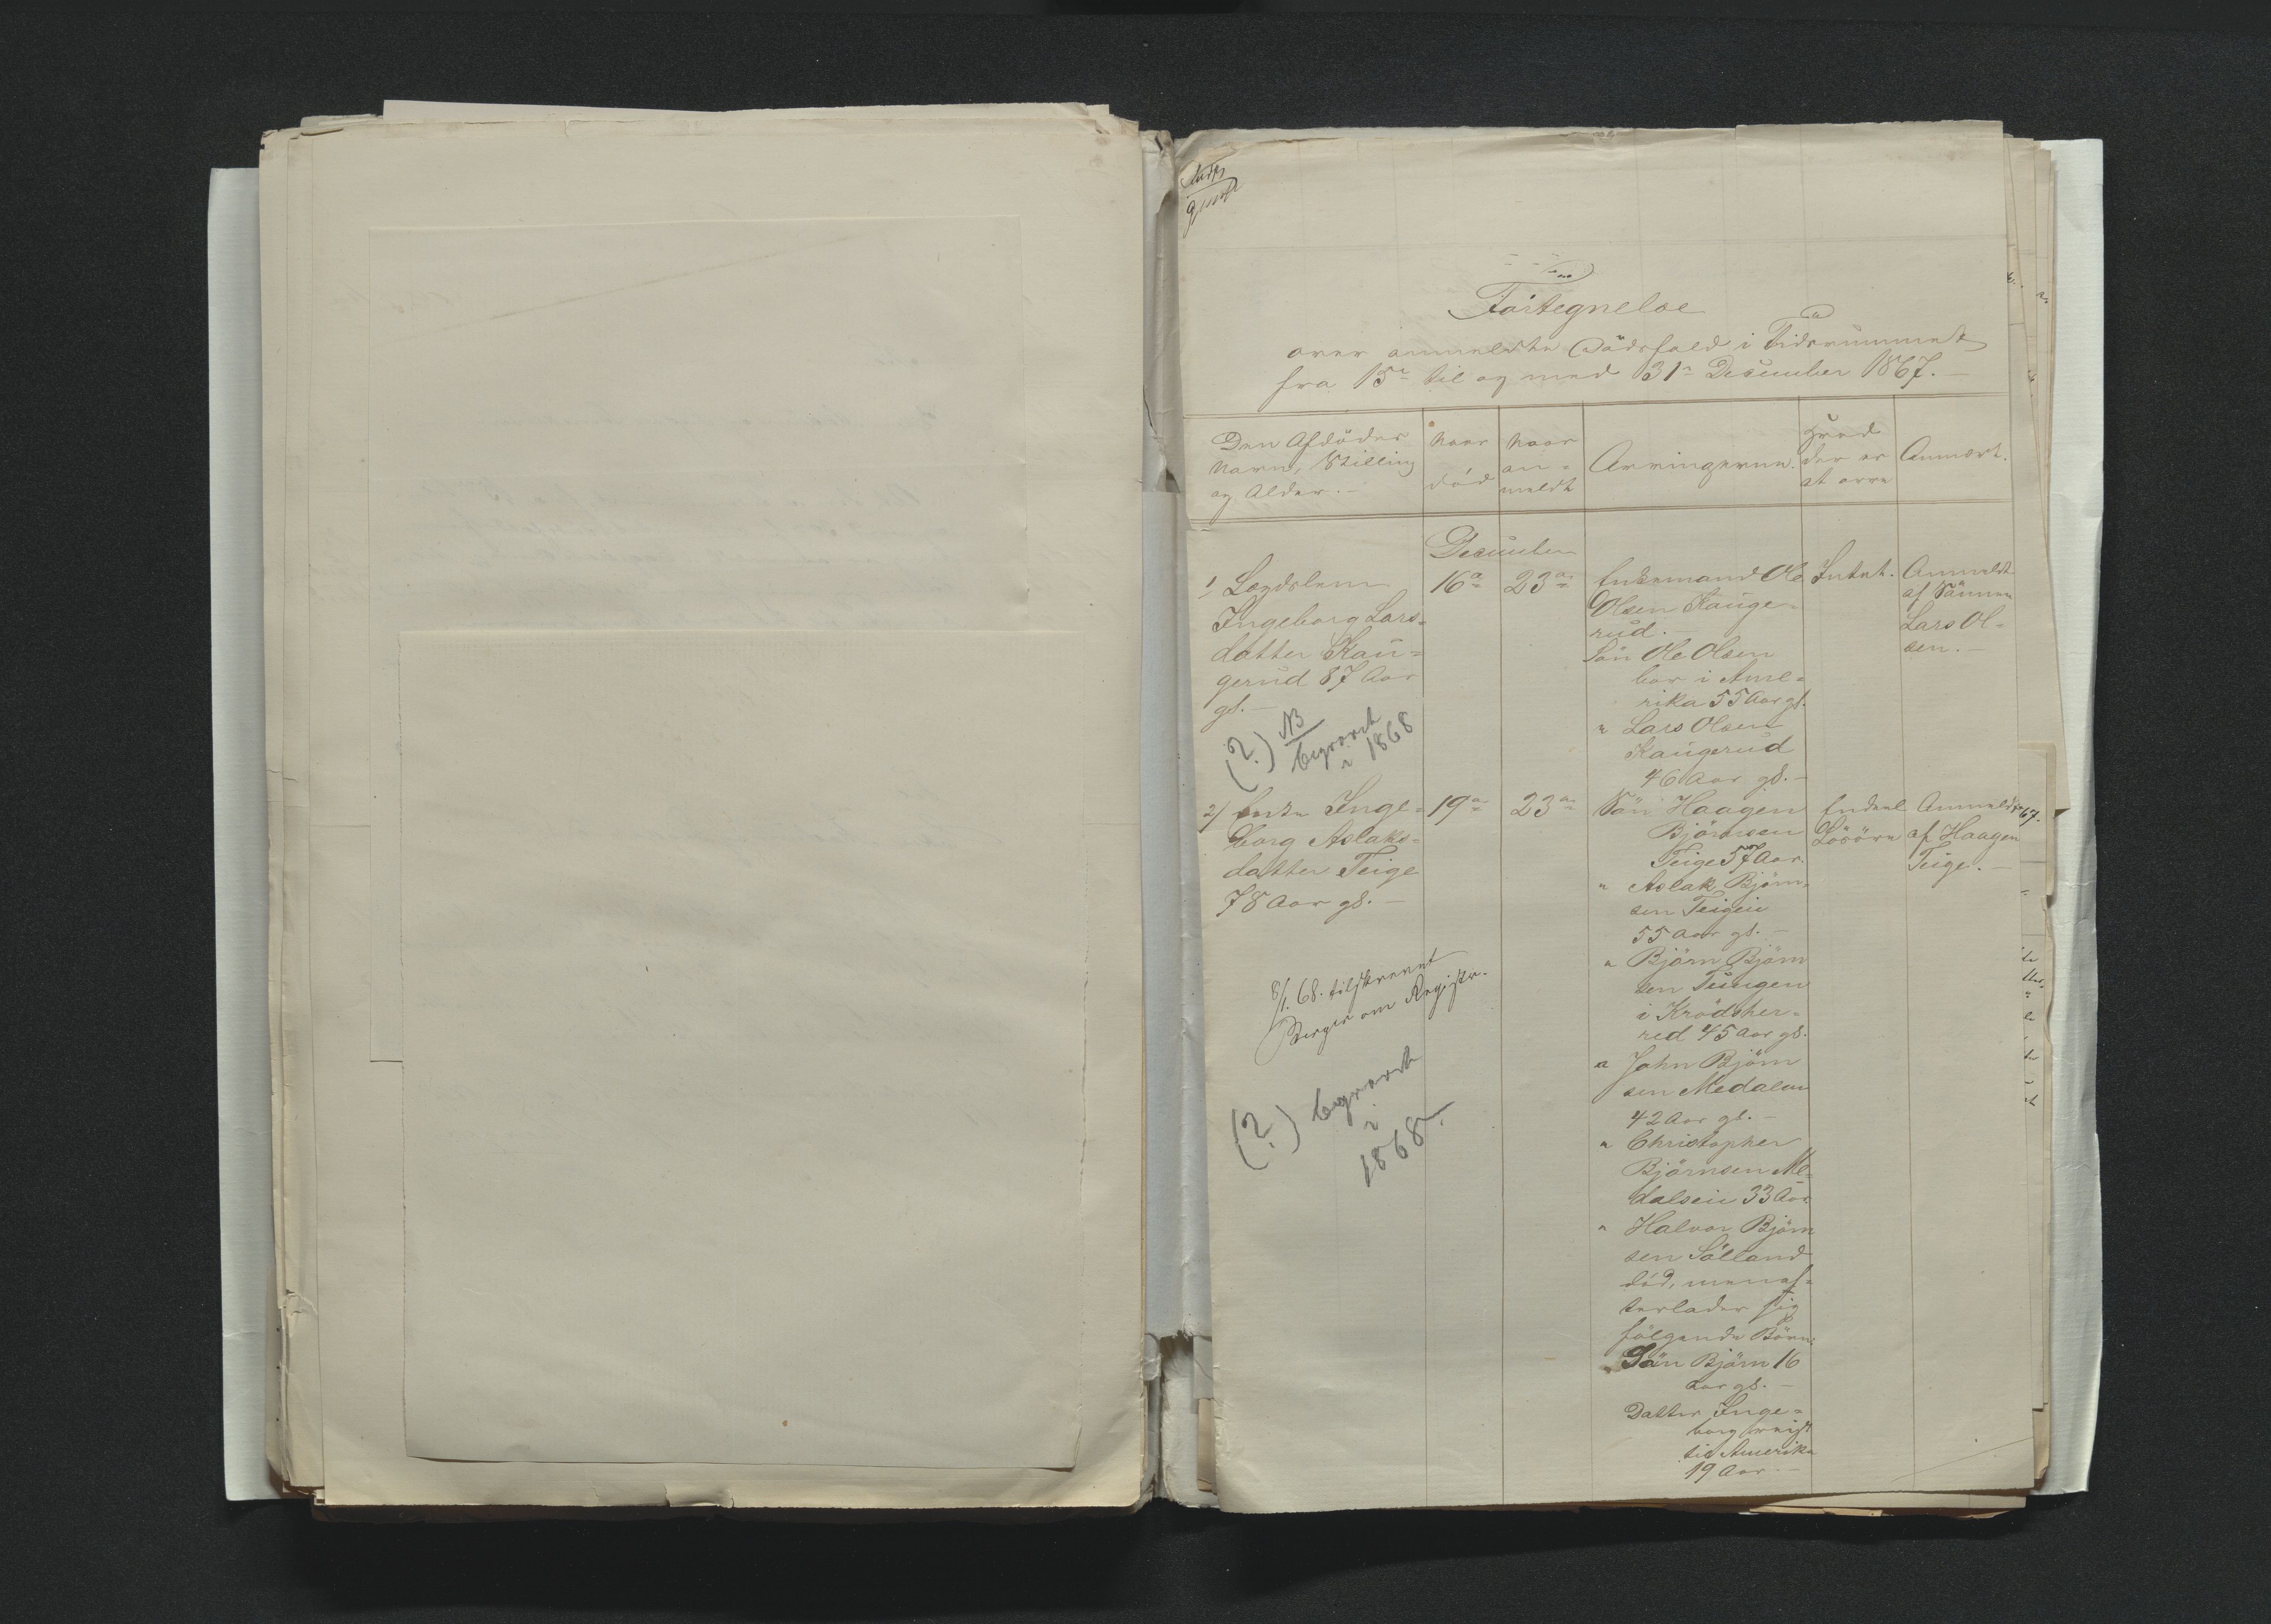 Fortegnelse
over anmeldte Dödsfald i Tidsrummet
fra 15de til og med 31te December 1867.
Den Afdödes
Navn, Stilling
og Alder.
Naar
död
Naar
an-
meldt
Arvingerne.
Hvad
der er
at arve
Anmærk.
December
1) Lægdslem
Ingeborg Lars-
datter Kau-
gerud 87 Aar
gl. -
16de
23de
Enkemand Ole
Olsen Kauge-
rud. -
Sön Ole Olsen
bor i Ame-
rika 55 Aar gl.
" Lars Olsen
Kaugerud
46 Aar gl. -
Intet.
Anmeldt
af Sönnen
Lars Ol-
sen. -
(?) NB
begravet
i 1868
2) Enke Inge-
borg Aslaks-
datter Teige
78 Aar gl. -
19de
23de
Sön Haagen
Björnsen
Teige 57 Aar
" Aslak Björn-
sen Teigeie
55 Aar gl. -
" Björn Björn
sen
i Krödsher-
red 45 Aar gl.
" John Björn
sen Medalen
42 Aar gl. -
" Christopher
Björnsen Me-
dalseie 33 Aar
" Halvor Björn
sen Sölland
död, men ef-
terlader sig
fölgende Börn:
Sön Björn 16
Aar gl. -
Datter Inge-
borg reist
til Amerika
19 Aar -
Endeel
Lösöre
Anmeldt
af Haagen
Teige. -
8/1. 68. tilskrevet
Berger om Registr.
(?) begravet
i
1868.
67.